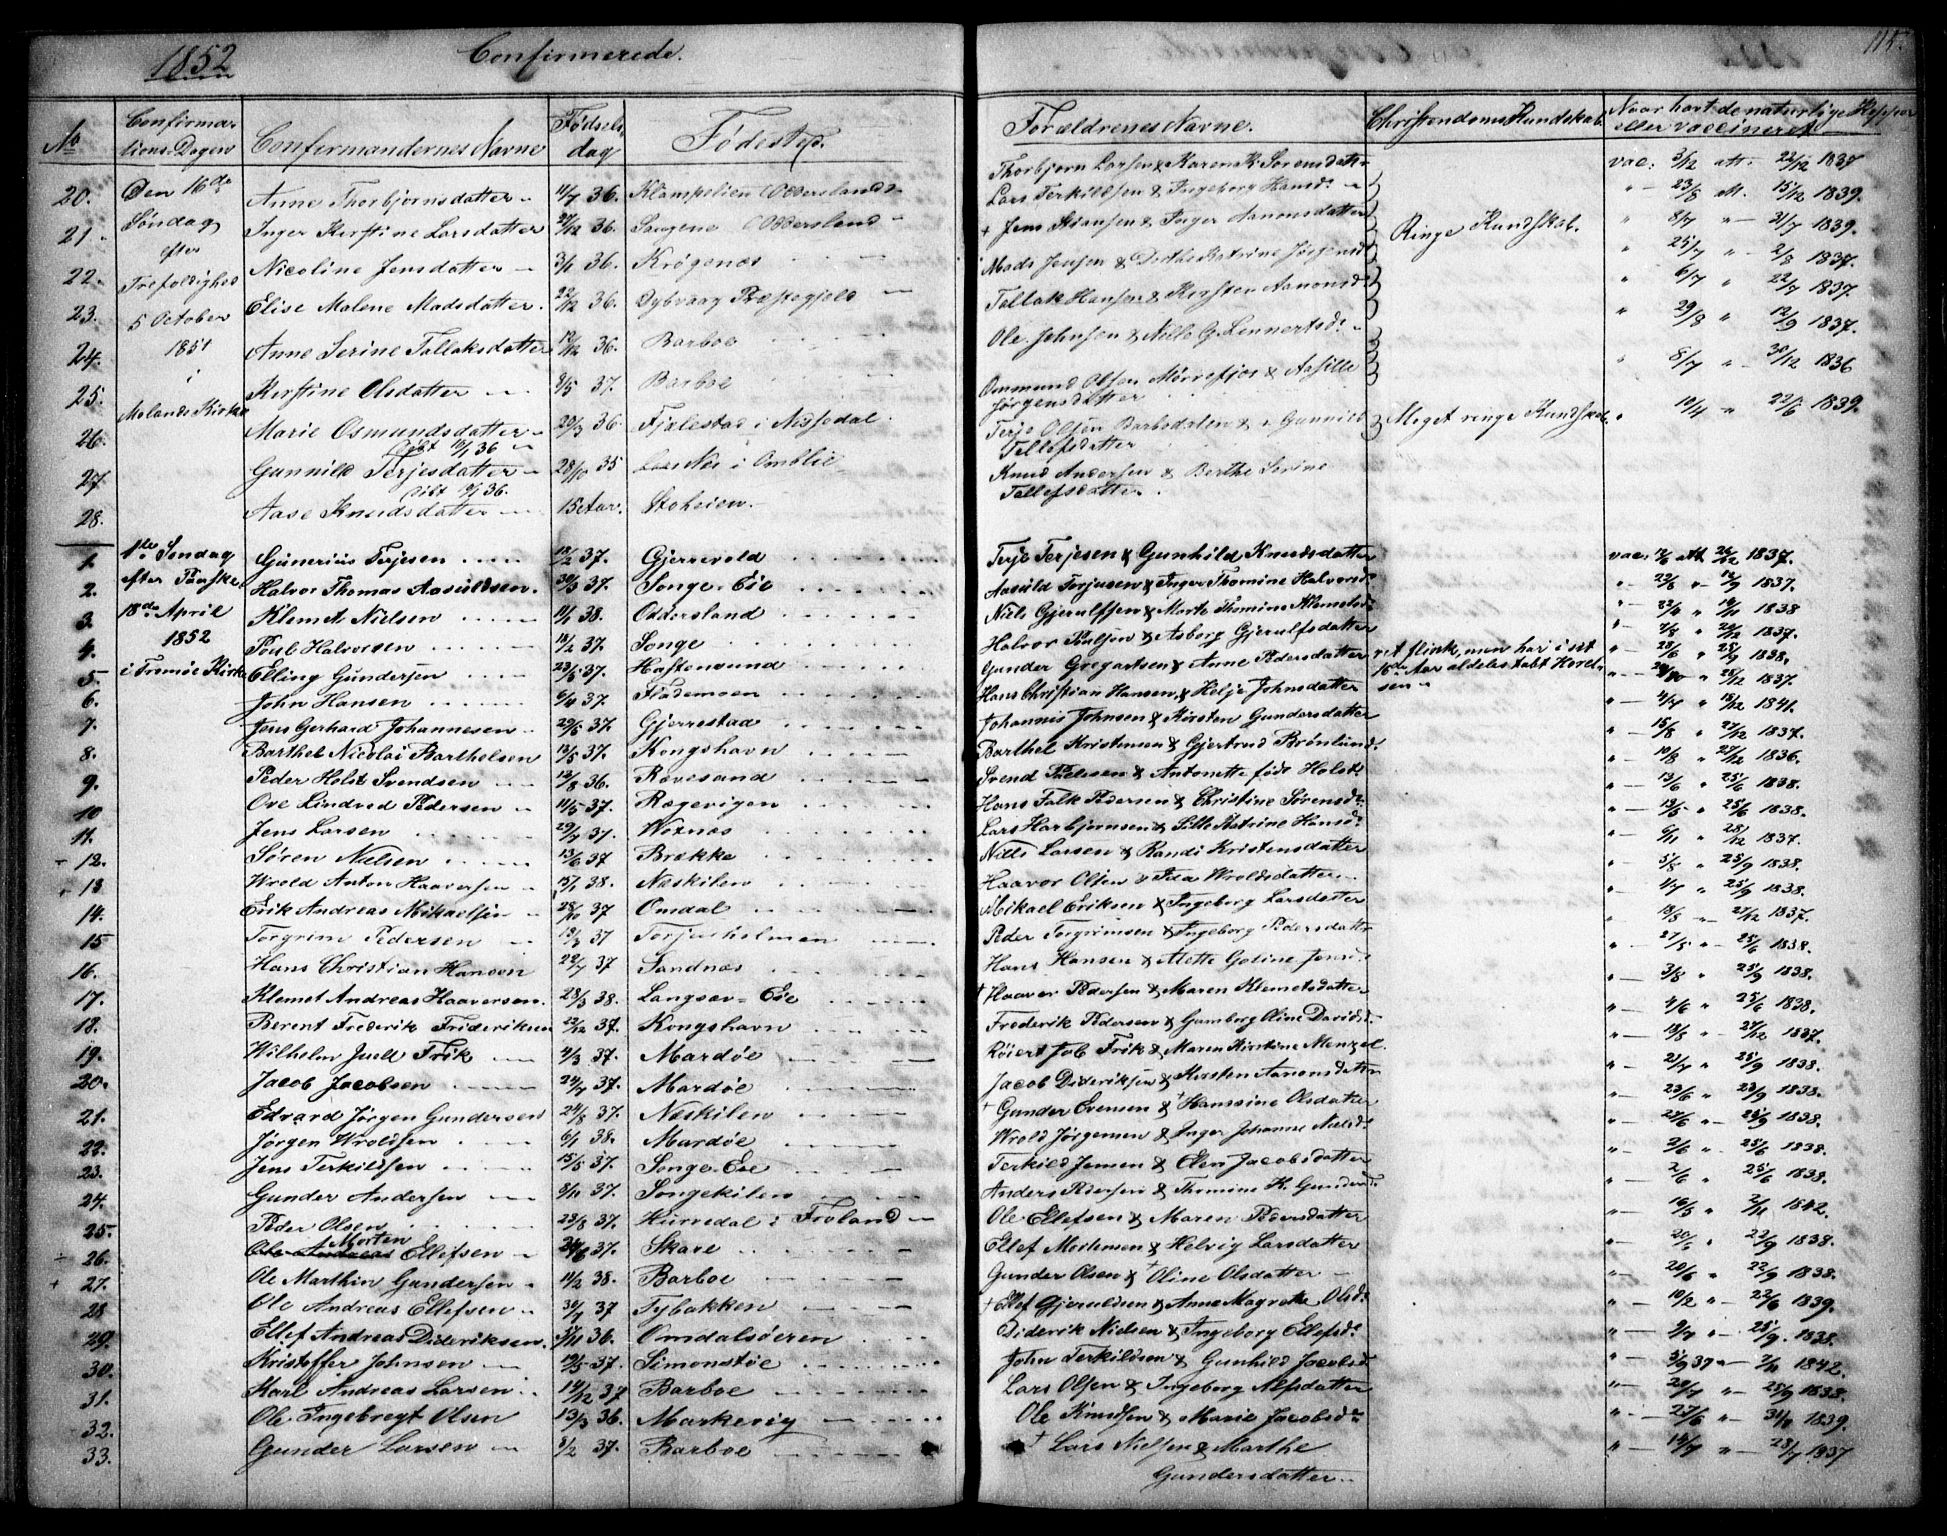 1852
Confirmerede.
115.
No
Confirma-
tions-Dagen
Confirmandernes Navne
Fødsels
dag
Fødested.
Forældrenes Navne.
Christendoms Kundskab.
Naar havt de naturlige Kopper
eller vaccineret
Den 16de
Søndag
efter
Trefoldighed
5 October
1851
i
Molands Kirke
20. Anne Thorbjørnsdatter 11/7 36. Klampelien Oddersland Thorbjørn Larsen & Karen K. Sørensdatter vac. 3/12 att. 22/12 1837
21. Inger Kirstine Larsdatter 27/12 36. Songene Oddersland Lars Terkildsen & Ingeborg Hansd. 23/8 att. 15/12 1839.
22. Nicoline Jensdatter 3/1 36. Krøgenæs † Jens & Inger Aanonsdatter 8/7 21/7 1839.
Ringe Kundskab.
23. Elise Malene Madsdatter. 22/12 36. Dybvaag Præstegjeld Mads Jensen & Dorthe Katrine 25/7 2/8 1837.
24. Anne Serine Tallaksdatter 12/12 36. Barboe Tallak Hansen & Kirsten Aanonsd. 6/7 22/7 1837.
25. Kirstine Olsdatter 9/5 37. Barboe Ole Johnsen & Nille G. Lennertsd. 29/8 12/9 1837.
26. Marie Osmundsdatter 20/3 36 i Nissedal. Ommund Olsen Mørrefjær & Aasille
Jørgensdatter 8/7 30/12 1836
27. Gunnild Terjesdatter 28/10 35 i Omblie Terje Olsen Barbodalen & Gunnild
Tellefsdatter Meget ringe Kundskab. 10/4 22/6 1839.
28. Aase Knudsdatter 15 Aar. Stoheien. Knud Andersen & Berthe Serine
Tellefsdatter.
1te Søndag
efter Paaske
18de April
1852
i Tromøe Kirke
1. Gunerius Terjesen 18/2 37. Gjerrevold Terje Terjesen & Gunhild Knudsdatter vac. 12/6 att 26/12 1837.
2. Halvor Thomas Aasuldsen. 30/3 37. Songe-Eie Aasuld Torjusen & Inger Thomine Halvorsd. 22/8 12/9 1837.
3. Klemet Nielsen 11/1 38. Oddersland Niels Gjerulfsen & Marte Thomine Klemetsd. 1838
4. Poul Halvorsen 18/2 37. Songe Halvor Poulsen & Asborg Gjerulfsdatter 7/8 20/12 1837.
5. Elling Gundersen 23/5 37. Haftensund Gunder Gregertsen & Anne Pedersdatter ret flink, men har i sit
16de Aar aldeles tabt Hørel-
sen 28/6 25/9 1838.
6. John Hansen 6/4 37. Findemoen Hans Christian Hansen & Helje Johnsdatter 26/12 1837.
7. Jens Gerhard Johannesen 29/6 37. Gjerrestad Johannis Johnsen & Kirsten Gundersdatter 4/7 15/12 1841.
8. Barthel Nicolai Bartholsen 13/5 37. Kongshavn Barthel Kristensen & Gjertrud Brønlund. 15/8 27/12 1837.
9. Peder Holst Svendsen 12/8 36. Revesand Svend & Antonette født Holst. 10/8 27/12 1836.
10 Ove Lindved Pedersen 11/5 37. Rægevigen Hans Falk Pedersen & Christine Sørensd. 13/6 25/6 1838.
11. Jens Larsen 29/7 37. Woxnæs Lars Harbjørnsen & Sille Katrine Hansd. 13/5 25/6 1838.
12. Søren Nielsen 13/6 37 Brække Nills Larsen & Randi Kristensdatter 6/11 28/12 1837.
13 Wrold Anton Haaversen 15/1 38. Næskilen Haavor Olsen & Ida Wroldsdatter 5/8 25/9 1838.
14. Erik Andreas Mikaelsen 28/10 37 Omdal Mikael Eriksen & Ingeborg Larsdatter 4/7 25/9 1838.
15 Torgrim Pedersen 13/3 37 Torjusholmen Peder Torgrimsen & Ingeborg Pedersdatter 18/8 27/12 1837.
16. Hans Christian Hansen 22/7 37 Sandnæs Hans Hansen & Alette Goline Jensd. 27/5 25/6 1838.
17. Klemet Andreas Haaversen. 28/3 38. Langsæv-Eie † Haaver Pedersen & Maren Klemetsdatter 3/8 25/9 1838.
18. Berent Frederik Frideriksen 22/12 37. Kongshavn Frederik Pedersen & Gumborg Oline Davidsd. 4/6 25/6 1838.
19. Wilhelm Juell Frik 4/3 37. Mardøe Røiert Job Frik & Maren Kirstine Menzel. 18/8 27/12 1837.
20. Jacob Jacobsen 24/7 37. Mardøe Jacob Dideriksen & Kirsten Aanonsdatter 21/7 25/9 1838.
21. Edvard Jørgen Gundersen 24/8 37. Næskilen † Gunder Evensen & † Hanssine Olsdatter 23/6 23/9 1838.
22. Jørgen Wroldsen 6/1 38. Mardøe Wrold Jørgensen & Inger Johanne Nielsd. 27/6 25/9 1838.
23. Jens Terkildsen 15/5 37. Songe-Eie Terkild Jensen & Elen Jacobsdatter 2/6 25/6 1838.
24. Gunder Andersen 8/11 37. Songekilen Anders Pedersen & Thomine K. Gundersd. 2/6 25/6 1838.
25. Peder Olsen 23/8 37. Hurredal i Froland Ole Ellefsen & Maren Pedersdatter 16/5 2/11 1842.
26. Ole Andreas Morten Ellefsen 37. Skare Ellef Mortensen & Helvig Larsdatter 20/5 23/9 1838.
27. Ole Marthin Gundersen 11/2 38. Barboe Gunder Olsen & † Oline Olsdatter 20/6 22/9 1838.
28 Ole Andreas Ellefsen 30/7 37 Tybakken † Ellef Gjeruldsen & Anne Magrethe Olsd. 10/2 22/6 1839.
29. Ellef Andreas Dideriksen. 36. Omdalsøeren Diderik Nielsen & Ingeborg Ellefsd. 9/7 25/9 1838.
30. Kristoffer Johnsen 19/5 37. Simonstøe John Terkildsen & Gunhild Jacobsd. 5/9 37 7/11 1842.
31. Karl Andreas Larsen 14/12 37 Barboe Lars Olsen & Ingeborg Alfsdatter 20/7 25/9 1838.
32. Ole Ingebregt Olsen 13/3 36. Markevig Ole Knudsen & Marie Jacobsd. 27/6 1839.
33. Gunder Larsen 8/2 37. Barboe † Lars Nielsen & Marthe
Gundersdatter 14/7 23/7 1837